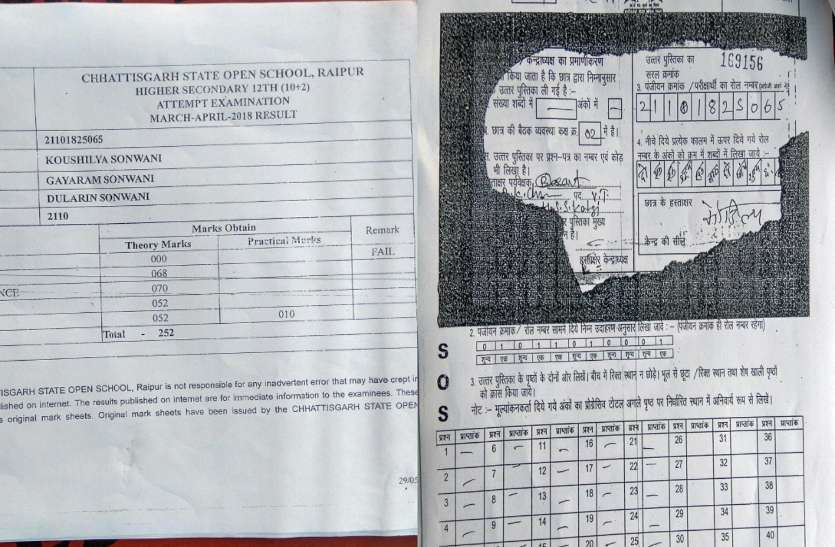 CHHATTISGARH STATE OPEN SCHOOL, RAIPUR
HIGHER SECONDARY 12TH (10+2)
ATTEMPT EXAMINATION
MARCH-APRIL-2018 RESULT
21101825065
KOUSHILYA SONWANI
GAYARAM SONWANI
DULARIN SONWANI
2110
Marks Obtain Remark
Theory Marks Practical Marks
000 FAIL
068
NCE 070
052
052 010
Total - 252
ISGARH STATE OPEN SCHOOL, Raipur is not responsible for any inadvertent error that may have crept in
lished on internet. The results published on internet are for immediate information to the examinees. These
s original mark sheets. Original mark sheets have been issued by the CHHATTISGARH STATE OPEN
29/05
केन्द्राध्यक्ष का प्रमाणीकरण
किया जाता है कि छात्र द्वारा निम्नानुसार
उत्तर पुस्तिका ली गई है :-
संख्या शब्दों में अंकों में
छात्र की बैठक व्यवस्था कक्ष क्र. 02 में है।
उत्तर पुस्तिका पर प्रश्न-पत्र का नम्बर एवं कोड
भी लिखा है।
पुस्तिका मुख्य
केन्द्राध्यक्ष
उत्तर पुस्तिका का 169156
सरल क्रमांक
3. पंजीयन क्रमांक /परीक्षार्थी का रोल नम्बर
21101825065
4. नीचे दिये प्रत्येक कालम में ऊपर दिये गये रोल
नम्बर के अंको को क्रम में शब्दों में लिखा जाये :-
छात्र के हस्ताक्षर
केन्द्र की सील
2. पंजीयन क्रमांक/ रोल नम्बर सामने दिये निम्न उदाहरण अनुसार लिखा जावे :- (पंजीयन क्रमांक ही रोल नम्बर रहेगा)
S
O
S
3. उत्तर पुस्तिका के पृष्ठों के दोनों ओर लिखें। बीच में रिक्त स्थान न छोड़े। भूल से छूटा /रिक्त स्थान तथा शेष खाली पृष्ठों
को क्रास किया जाये।
नोट :- मूल्यांकनकर्ता दिये गये अंकों का प्रोग्रेसिव टोटल अगले पृष्ठ पर निर्धारित स्थान में अनिवार्य रूप से लिखें।
प्रश्न प्राप्तांक प्रश्न प्राप्तांक प्रश्न प्राप्तांक प्रश्न प्राप्तांक प्रश्न प्राप्तांक प्रश्न प्राप्तांक प्रश्न प्राप्तांक प्रश्न प्राप्तांक
1 6 11 16 21 26 31 36
2 7 12 17 22 27 32 37
3 8 13 18 23 28 33 38
4 9 14 19 24 29 34 39
15 20 25 30 35 40